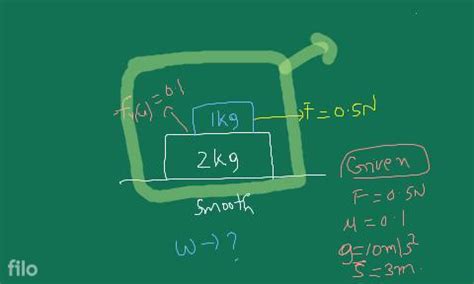 fᵣ(μ) = 0.1
1kg
F = 0.5N
2kg
smooth
W → ?
Given
F = 0.5N
μ = 0.1
g = 10m/s²
S = 3m.
filo